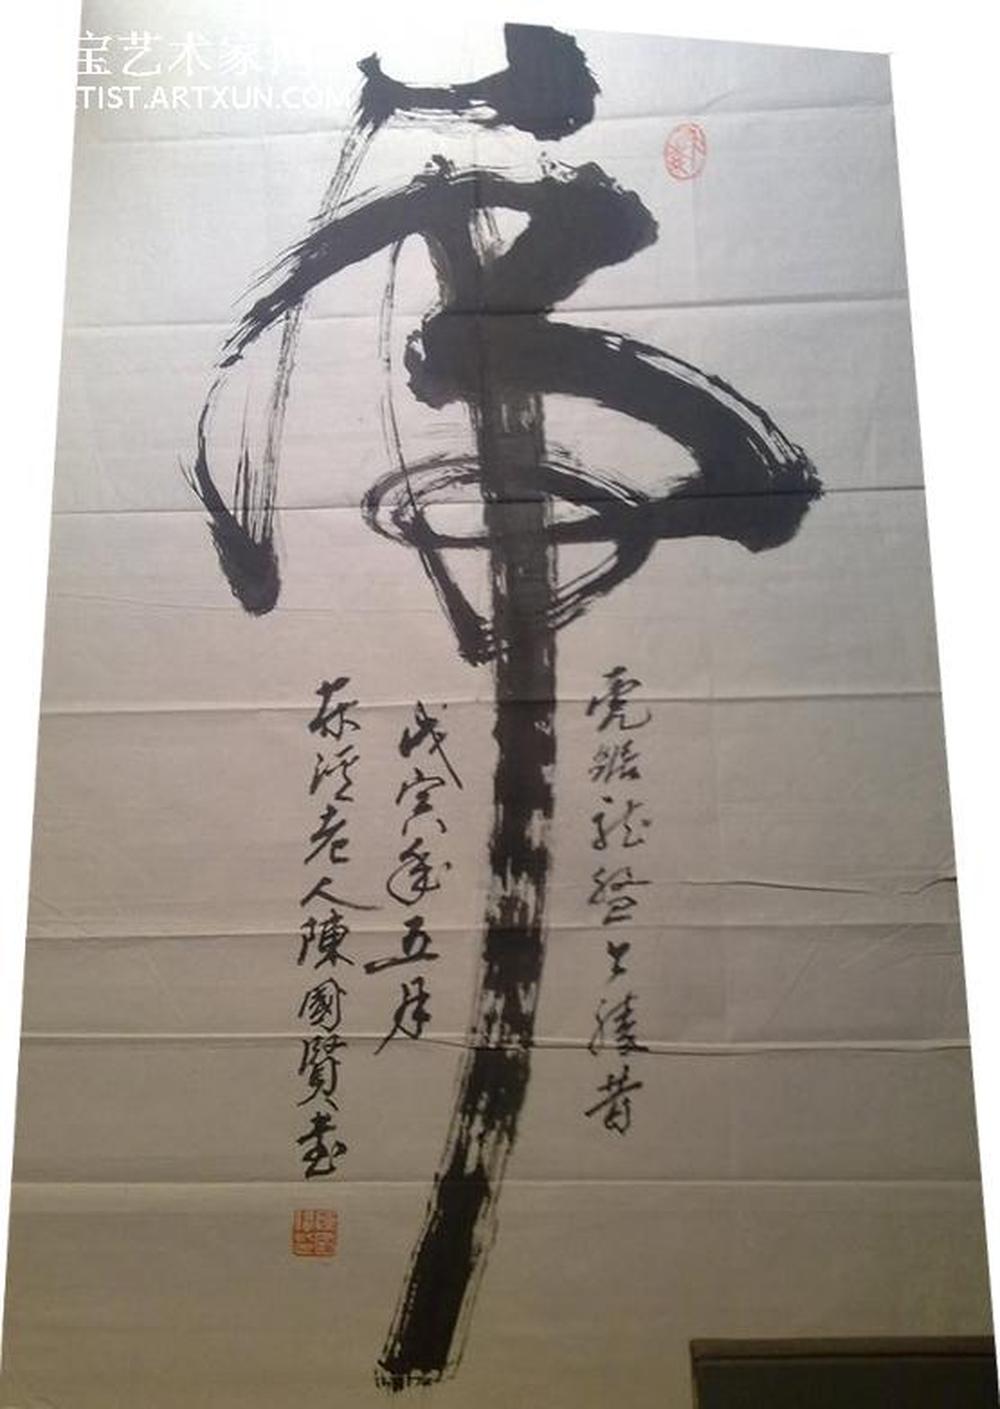 宝艺术家
TIST.ARTXUN.COM
虎
虎踞龍盤今勝昔
戊寅年五月
溪老人陳國賢書